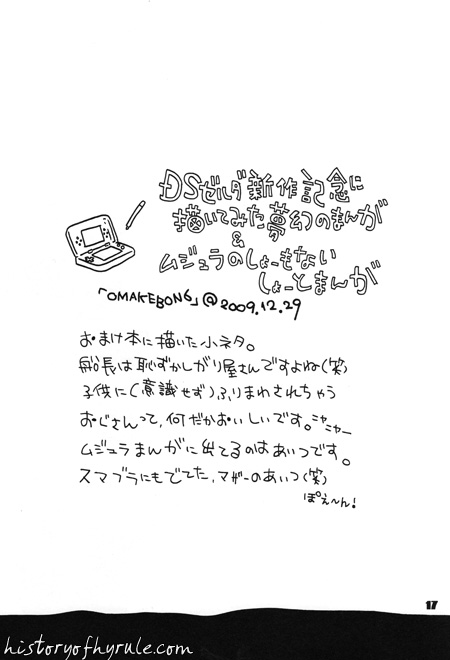 DSゼルダ新作記念に
描いてみた夢幻のまんが
&
ムジュラのしょーもない
しょーとまんが
「OMAKEBON6」@2009.12.29
おまけ本に描いた小ネタ。
船長は恥ずかしがり屋さんですよね(笑)
子供に(意識せず)ふりまわされちゃう
おじさんって、何だかおいしいです。ニャニャー
ムジュラまんがに出てるのはあいつです。
スマブラにもでてた、マザーのあいつ(笑)
ぽえ~ん!
17
historyofhyrule.com